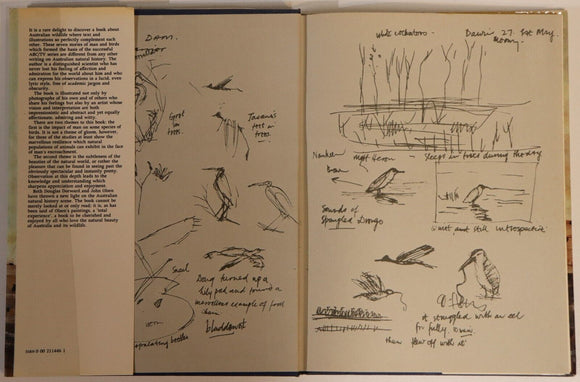 It is a rare delight to discover a book about
Australian wildlife where text and
illustrations so perfectly complement each
other. These seven stories of man and birds
which formed the basis of the successful
ABC/TV series are different from any other
writing on Australian natural history. The
author is a distinguished scientist who has
never lost his feeling of affection and
admiration for the world about him and who
can express his observations in a lucid, even
lyric style, free of academic jargon and
obscurity.
The book is illustrated not only by
photographs of his own and of others who
share his feelings but also by an artist whose
vision and interpretation are both
impressionistic and abstract and yet equally
affectionate, admiring and witty.
There are two themes to this book: the
first is the impact of man on some species of
birds. It is not a theme of gloom, however,
for these of the studies at least show the
marvellous resilience which natural
populations of animals can exhibit in the face
of man's encroachment.
The second theme is the subtleness of the
beauties of the natural world; rather the
pleasure that can be found in seeing past the
obviously spectacular and instantly pretty.
Observation at this depth leads to the
knowledge and understanding which
sharpens appreciation and enjoyment.
Both Douglas Dorward and John Olsen
have thrown a new light on the Australian
natural history scene. The book cannot be
merely looked at or only read; it is, as has
been said of Olsen's paintings, a 'total
experience', a book to be cherished and
enjoyed by all who love the natural beauty
of Australia and its wildlife.
ISBN 0 00 211446 1
DAM.
in
trees.
tree in
trees.
Snail
Doug turned up a
lily pad and found a
marvellous example of food
chain
bladderwort
beetles
white cockatoos
27. Sat May
Nankeen night Heron — sleeps in trees during the day
Sounds of
Spangled Drongo
quiet and still introspective
it struggled with an eel
for fully
then flew off with it